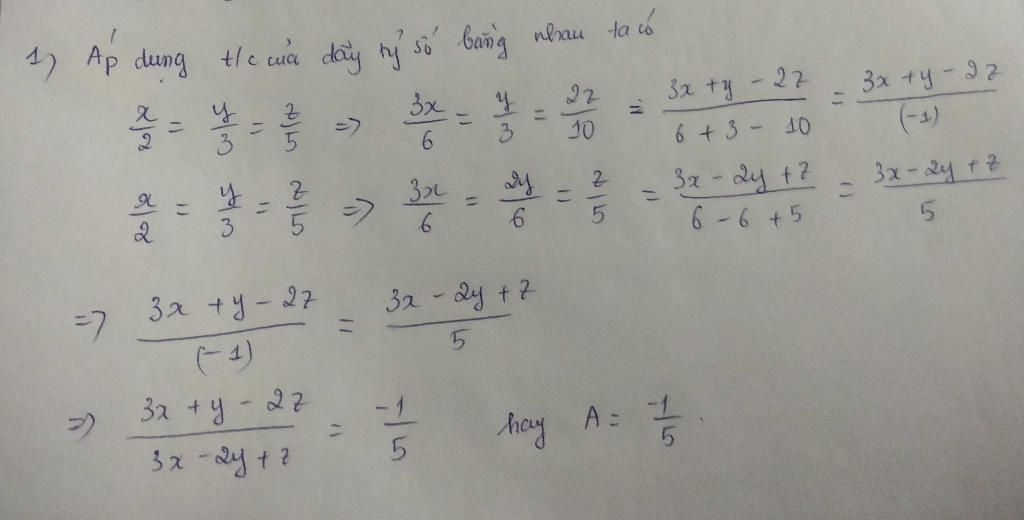 1) Áp dụng t/c của dãy tỷ số bằng nhau ta có
x/2 = y/3 = z/5 => 3x/6 = y/3 = 2z/10 = (3x + y - 2z)/(6 + 3 - 10) = (3x + y - 2z)/(-1)
x/2 = y/3 = z/5 => 3x/6 = 2y/6 = z/5 = (3x - 2y + z)/(6 - 6 + 5) = (3x - 2y + z)/5
=> (3x + y - 2z)/(-1) = (3x - 2y + z)/5
=> (3x + y - 2z)/(3x - 2y + z) = -1/5 hay A = -1/5.